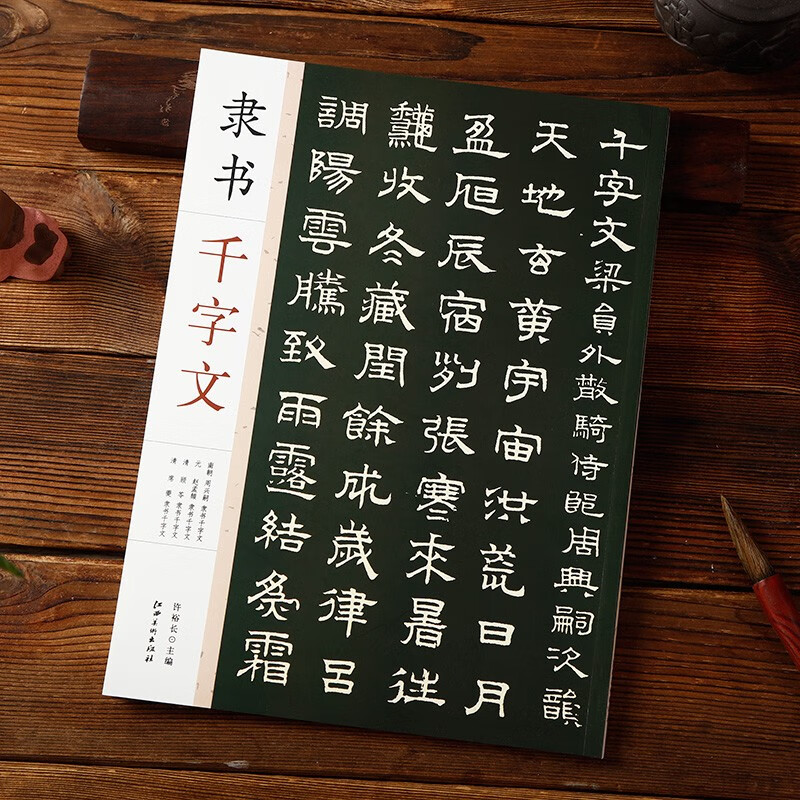 隶书
千字文
南朝 周兴嗣 隶书千字文
元 赵孟頫 隶书千字文
清 顾苓 隶书千字文
清 席夔 隶书千字文
许裕长⊙主编
江西美术出版社
千字文梁員外散騎侍郎周興嗣次韻
天地玄黃宇宙洪荒日月
盈昃辰宿列張寒來暑往
龝收冬藏閏餘成歲律呂
調陽雲騰致雨露結為霜